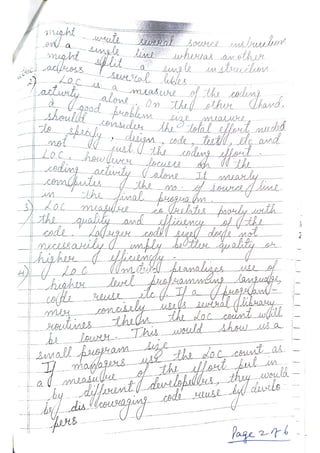 might write several source instruction
on a single line whereas another
might split a single instruction
across several lines.
2) LOC is a measure of the coding
activity alone. On the other hand,
a good problem size measure
should consider the total effort needed
to specify, design, code, test, etc and
not just the coding effort.
LOC, however focuses on the
coding activity alone. It mearly
computes the no. of source line
in the final program.
3) LOC measure correlates poorly with
the quality and efficiency of the
code. Larger code size does not
necessarily imply better quality or
higher efficiency.
4) LOC metric peanalizes use of
higher level programming languages,
code reuse etc. If a program-
mer concisely uses several library
routines then the LOC count will
be lower. This would show us a
small program size
If managers use the LOC count as
a measure of the effort put in
by different developers, they would
be discouraging code reuse by develo
pers.
Page 2 of 6